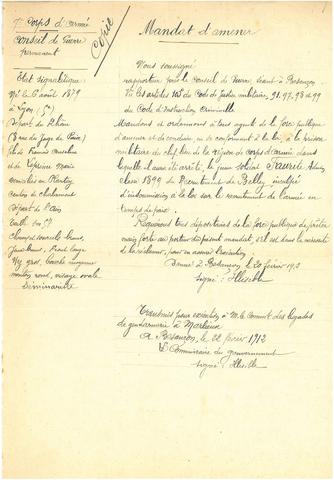 7e Corps d'armée
Conseil de Guerre
permanent
Copie
État signalétique
Né le 6 août 1879
à Lyon (5e)
Départ. du Rhône
fils de
et de
domicilié à
canton de Chalamont
Départ. de l'Ain
Taille 1m
Cheveux et sourcils
front
Nez gros, bouche moyenne
menton rond, visage ovale
Séminariste
Mandat d'amener
Nous soussigné
rapporteur près le Conseil de Guerre séant à Besançon
Vu les articles 105 du Code de Justice militaire, 91. 97. 98 et 99
du Code d'Instruction Criminelle
Mandons et ordonnons à tous agents de la force publique
d'amener et de conduire, en se conformant à la loi, à la prison
militaire du chef lieu de la région de corps d'armée dans
laquelle il aura été arrêté, le jeune soldat
classe 1899 du Recrutement de Belley inculpé
d'insoumission à la loi sur le recrutement de l'armée en
temps de paix.
Requérons tous dépositaires de la force publique de prêter
main forte au porteur du présent mandat, s'il est dans la nécessité
de la réclamer, pour en assurer l'exécution.
Donné à Besançon, le 20 février 1912
signé :
Transmis pour exécution à M. le Command. des brigades
de gendarmerie à Marlieux
A Besançon, le 22 février 1912
Le Commissaire du gouvernement
signé :